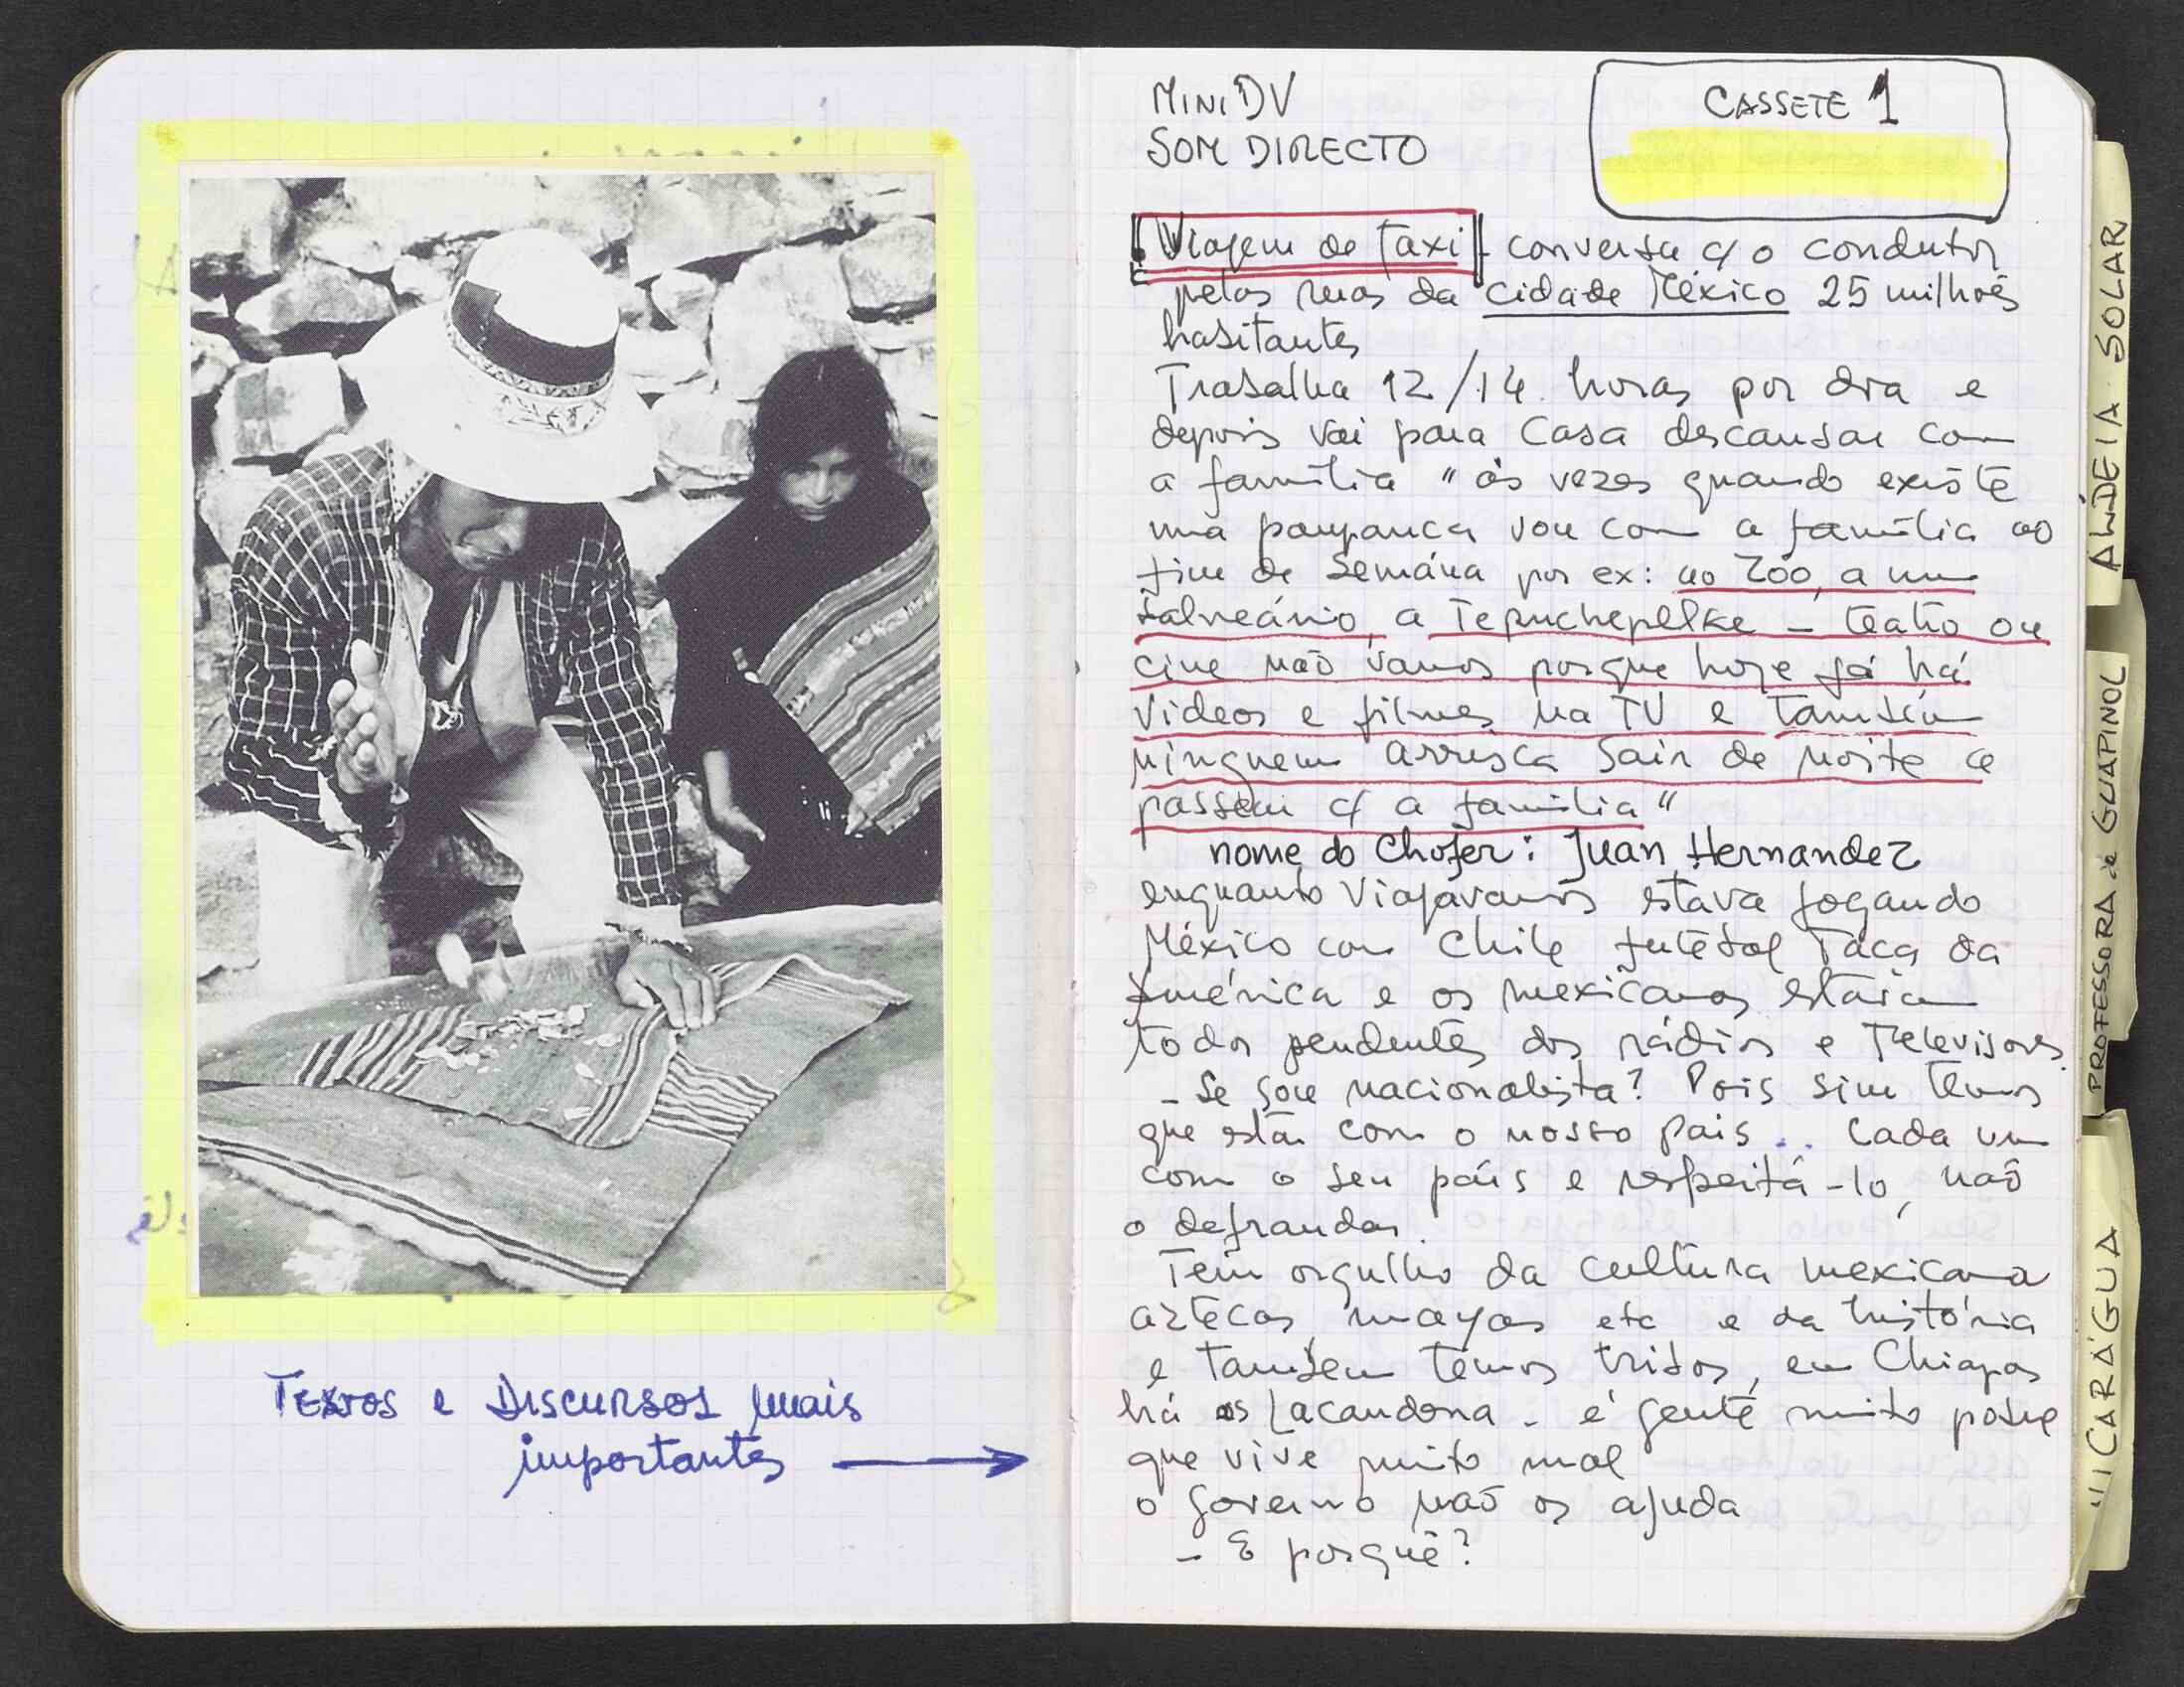 Textos e Discursos mais
importantes
Mini DV
SOM DIRECTO
CASSETE 1
Viagem de taxi - conversa c/ o condutor
pelas ruas da cidade México 25 milhões
habitantes
Trabalha 12/14 horas por dia e
depois vai para casa descansar com
a família " às vezes quando existe
uma poupança vou com a família ao
fim de semana por ex: ao Zoo, a um
balneário, a
 - teatro ou
cine não vamos porque hoje já há
videos e filmes na TV e também
ninguem arrisca sair de noite a
passear c/ a família "
nome do Chofer: Juan Hernandez
enquanto viajavamos estava jogando
México com Chile futebol Taça da
América e os mexicanos estavam
todos pendentes dos rádios e Televisores
- Se sou nacionalista? Pois sim temos
que estar com o nosso pais... Cada um
com o seu país e respeitá-lo, não
o defraudar.
Tem orgulho da cultura mexicana
aztecas, mayas etc e da história
e tambem temos tribos, em Chiapas
há os Lacandona - é gente muito pobre
que vive muito mal
o governo não os ajuda
- E porquê?
ALDEIA SOLAR
PROFESSORA de GUAPINOL
NICARÁGUA